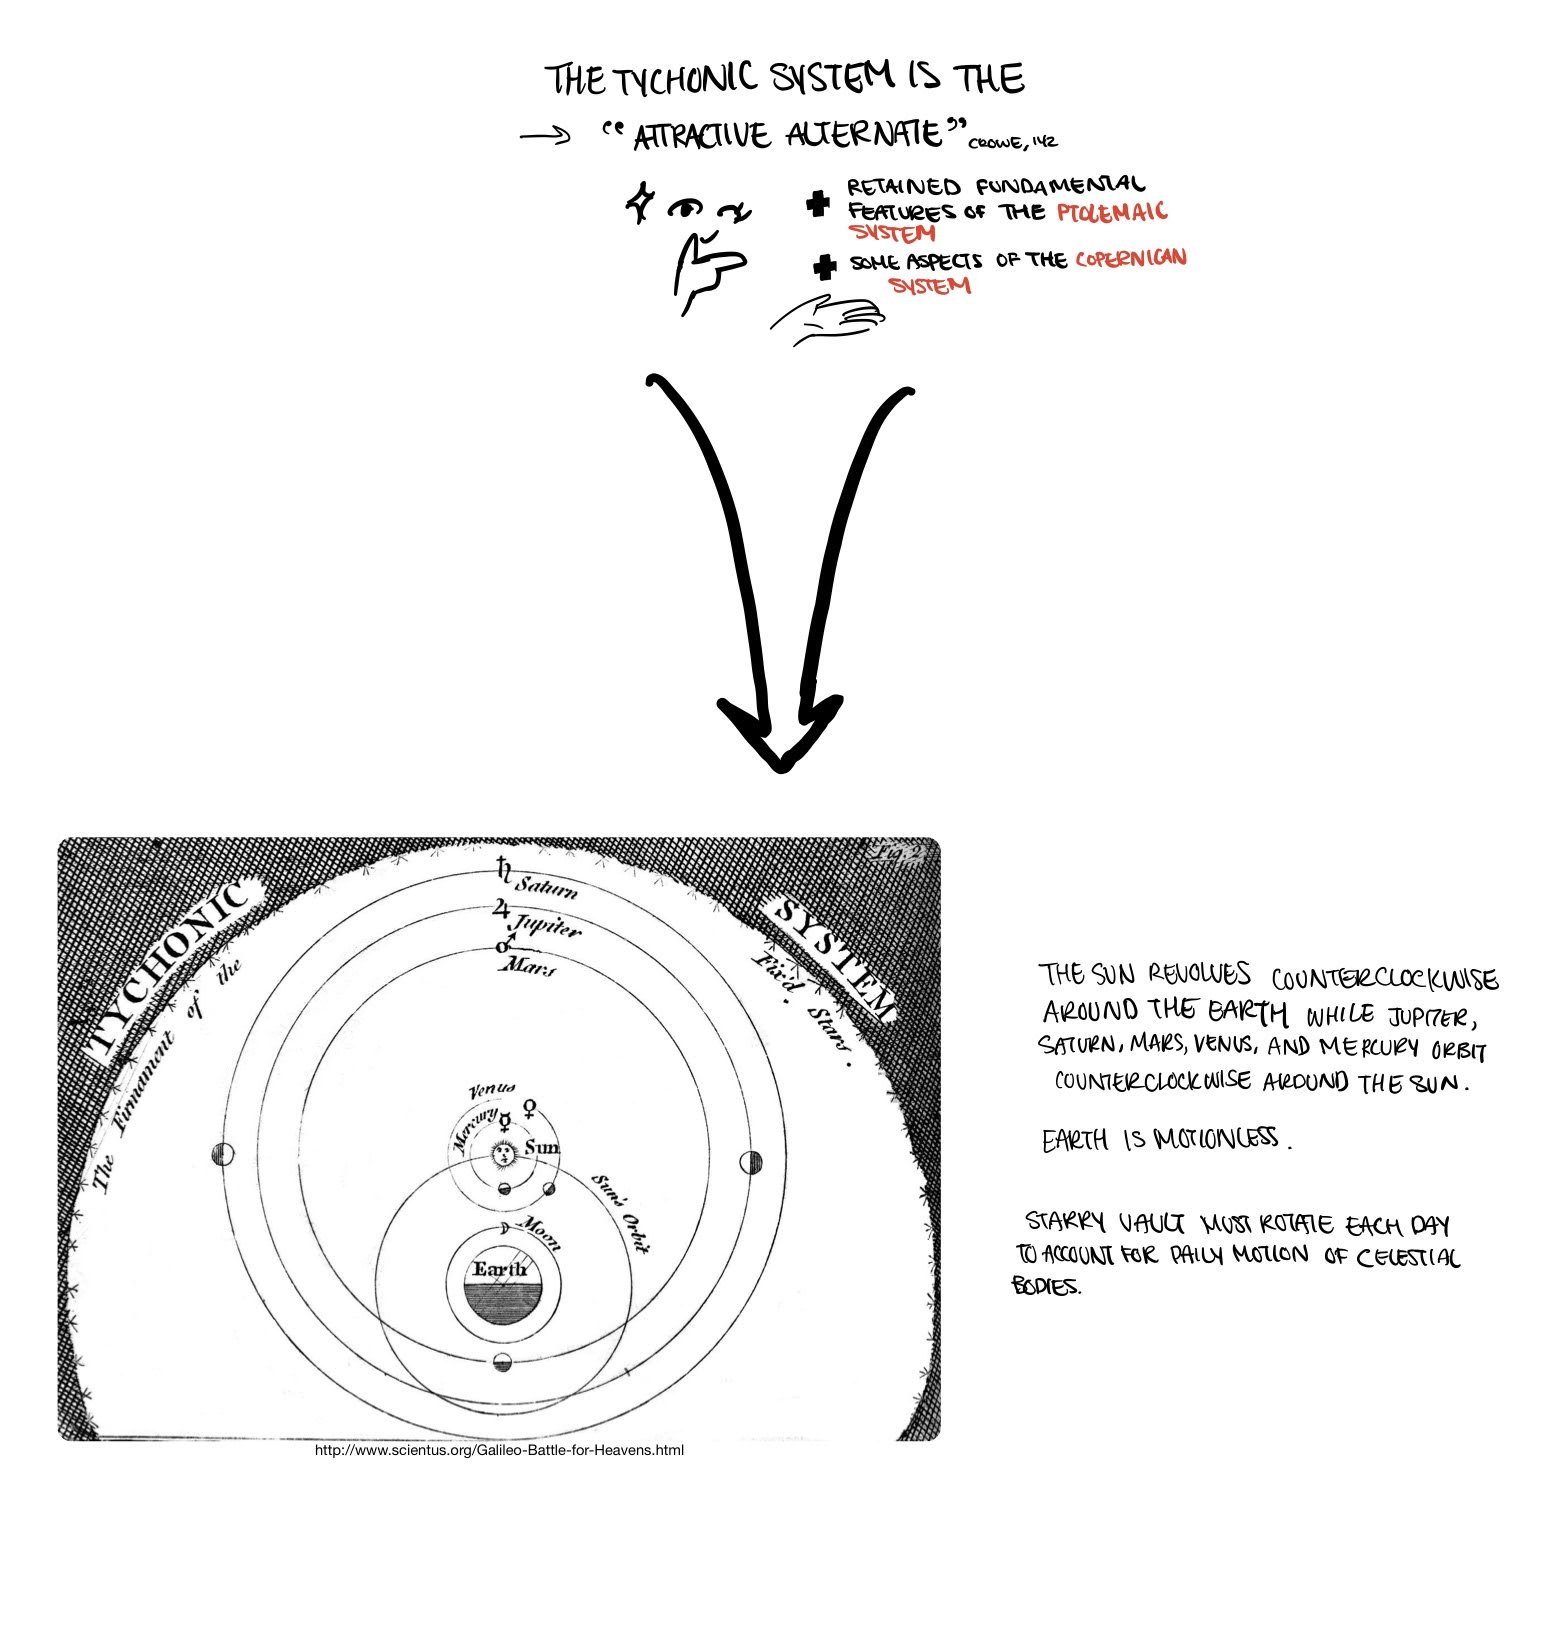 THE TYCHONIC SYSTEM IS THE
→ "ATTRACTIVE ALTERNATE" CROWE, 142
+ RETAINED FUNDAMENTAL
FEATURES OF THE PTOLEMAIC
SYSTEM
+ SOME ASPECTS OF THE COPERNICAN
SYSTEM
TYCHONIC SYSTEM
The Firmament of the Fix'd Stars.
♄ Saturn
♃ Jupiter
♂ Mars
Venus ♀
Mercury ☿
Sun
Sun's Orbit
Moon
Earth
http://www.scientus.org/Galileo-Battle-for-Heavens.html
THE SUN REVOLVES COUNTERCLOCKWISE
AROUND THE EARTH WHILE JUPITER,
SATURN, MARS, VENUS, AND MERCURY ORBIT
COUNTERCLOCKWISE AROUND THE SUN.
EARTH IS MOTIONLESS.
STARRY VAULT MUST ROTATE EACH DAY
TO ACCOUNT FOR DAILY MOTION OF CELESTIAL
BODIES.